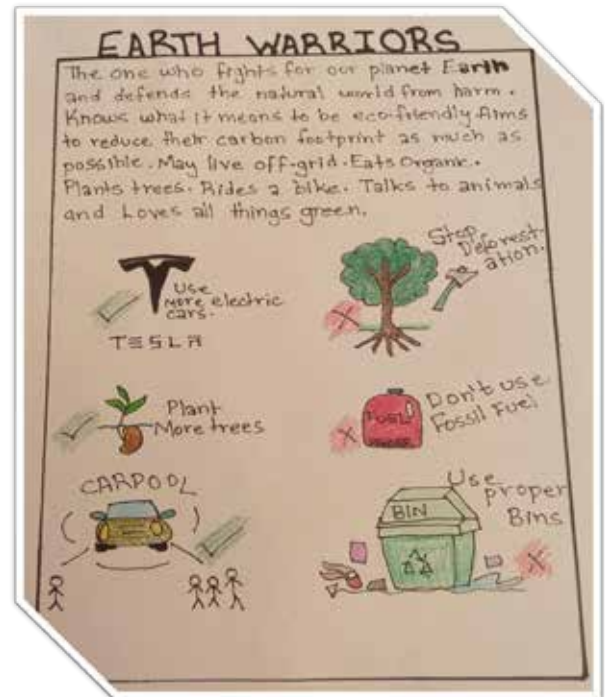 EARTH WARRIORS
The one who fights for our planet Earth
and defends the natural world from harm.
Knows what it means to be eco-friendly.Aims
to reduce their carbon footprint as much as
possible. May live off-grid. Eats Organic.
Plants trees. Rides a bike. Talks to animals
and Loves all things green.
Use
more electric
cars.
TESLA
Stop
Deforest-
ation.
Plant
More trees
FUEL
Don't use
Fossil Fuel
CARPOOL
BIN
Use
proper
Bins